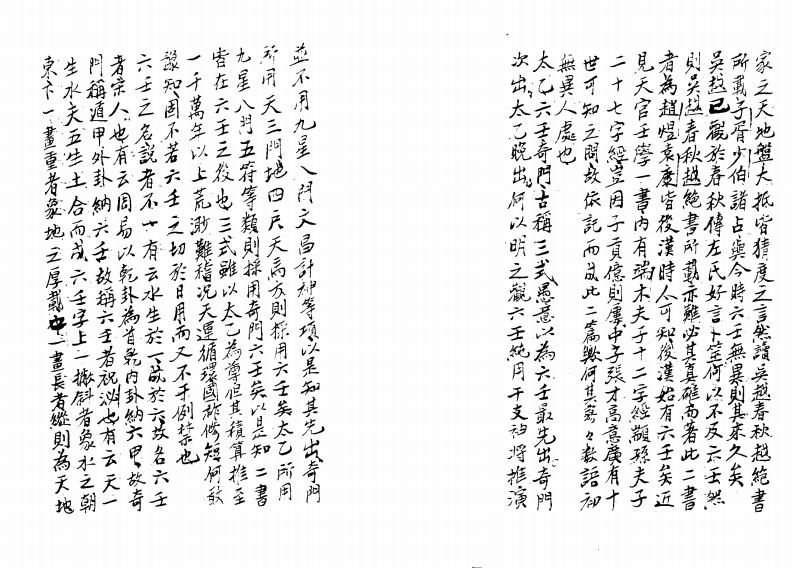 家之天地盤大抵皆猜度之言然讀吳越春秋越絕書
所載子胥少伯諸占與今時六壬無異則其來久矣
吳越已復於春秋傳左氏好言卜筮何以不及六壬然
則吳越春秋越絕書所載亦難必其真確而著此二書
者為趙煜袁康皆後漢時人可知後漢始有六壬矣近
見天官壬學一書內有瑞木夫子十二字經顓孫夫子
二十七字經豈因子貢億則屢中子張才高意廣有十
世可知之問故依託而成此二篇歟何其寥々數語初
無異人處也
太乙六壬奇門古稱三式愚意以為六壬最先出奇門
次出太乙晚出何以明之觀六壬純用干支神將推演
並不用九星八門文昌計神等項以是知其先出奇門
所用天三門地四戶天馬方則採用六壬矣太乙所用
九星八門五符等類則採用奇門六壬矣以是知二書
皆在六壬之後也三式雖以太乙為尊但其積算推至
一千萬年以上荒渺難稽况天運循環國祚修短何敢
豫知固不若六壬之切於日用而又不干例禁也
六壬之名說者不一有云水生於一成於六故名六壬
者宗人也有云周易以乾卦為首乾內卦納六甲故奇
門稱遁甲外卦納六壬故稱六壬者祝泌也有云天一
生水天五生土合而成六壬字上一撇斜者象水之朝
東下一畫重者象地之厚載中一畫長者縱則為天地